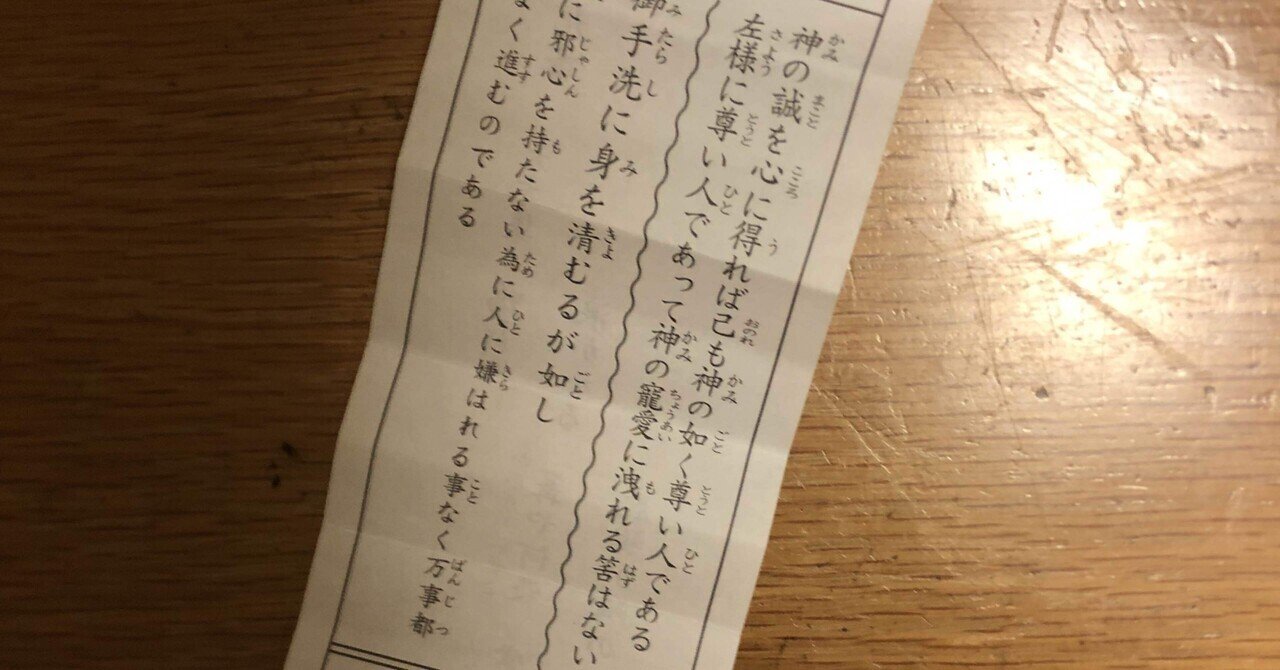 神の誠を心に得れば己も神の如く尊い人である
左様に尊い人であって神の寵愛に洩れる筈はない
御手洗に身を清むるが如し
に邪心を持たない為に人に嫌はれる事なく万事都
く進むのである